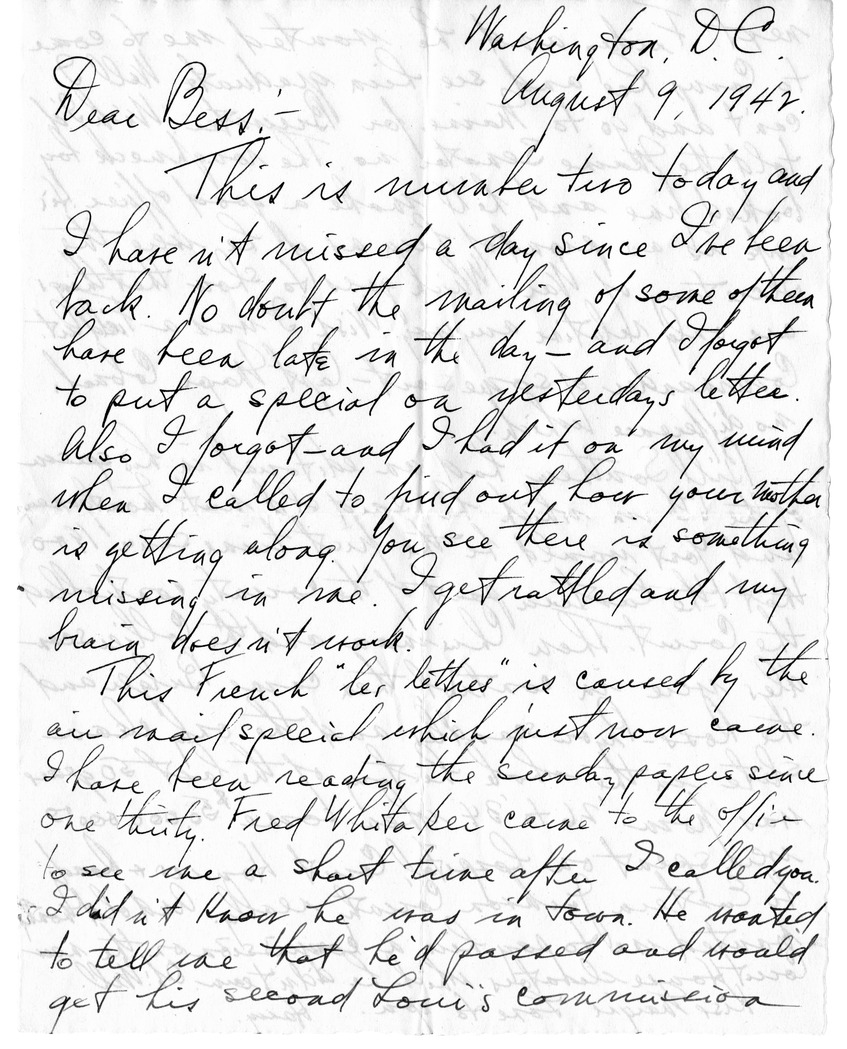 Washington, D.C.
August 9, 1942.
Dear Bess:-
This is number two today and
I haven't missed a day since I've been
back. No doubt the mailing of some of them
have been late in the day - and I forgot
to put a special on yesterdays letter.
Also I forgot - and I had it on my mind
when I called to find out how your mother
is getting along. You see there is something
missing in me. I get rattled and my
brain doesn't work.
This French "les lettres" is caused by the
air mail special which just now came.
I have been reading the Sunday papers since
one thirty. Fred Whitaker came to the office
to see me a short time after I called you.
I didn't know he was in town. He wanted
to tell me that he'd passed and would
get his second Loui's commission